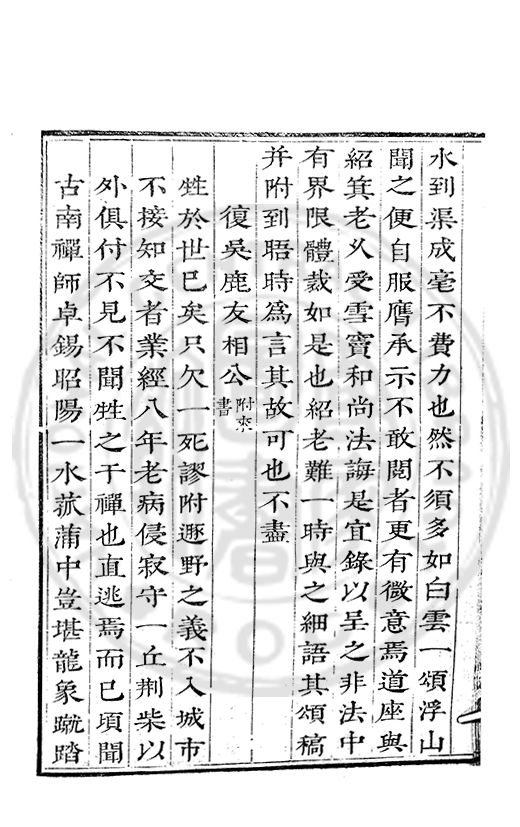 水到渠成毫不費力也然不須多如白雲一頌浮山
聞之便自服膺承示不敢閱者更有微意焉道座與
紹箕老人受雪竇和尚法誨是宜錄以呈之非法中
有界限體裁如是也紹老難一時與之細語其頌稿
并附到晤時爲言其故可也不盡
復吳鹿友相公附來書
甡於世已矣只欠一死謬附遯野之義不入城市
不接知交者業經八年老病侵寂守一丘荆柴以
外俱付不見不聞甡之于禪也直逃焉而已頃聞
古南禪師卓錫昭陽一水菰蒲中豈堪龍象蹴踏